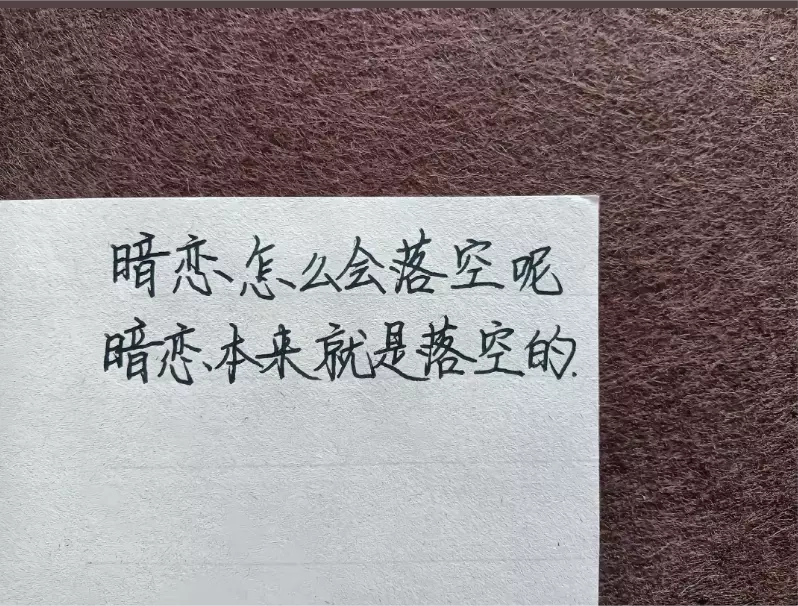 暗恋怎么会落空呢
暗恋本来就是落空的.